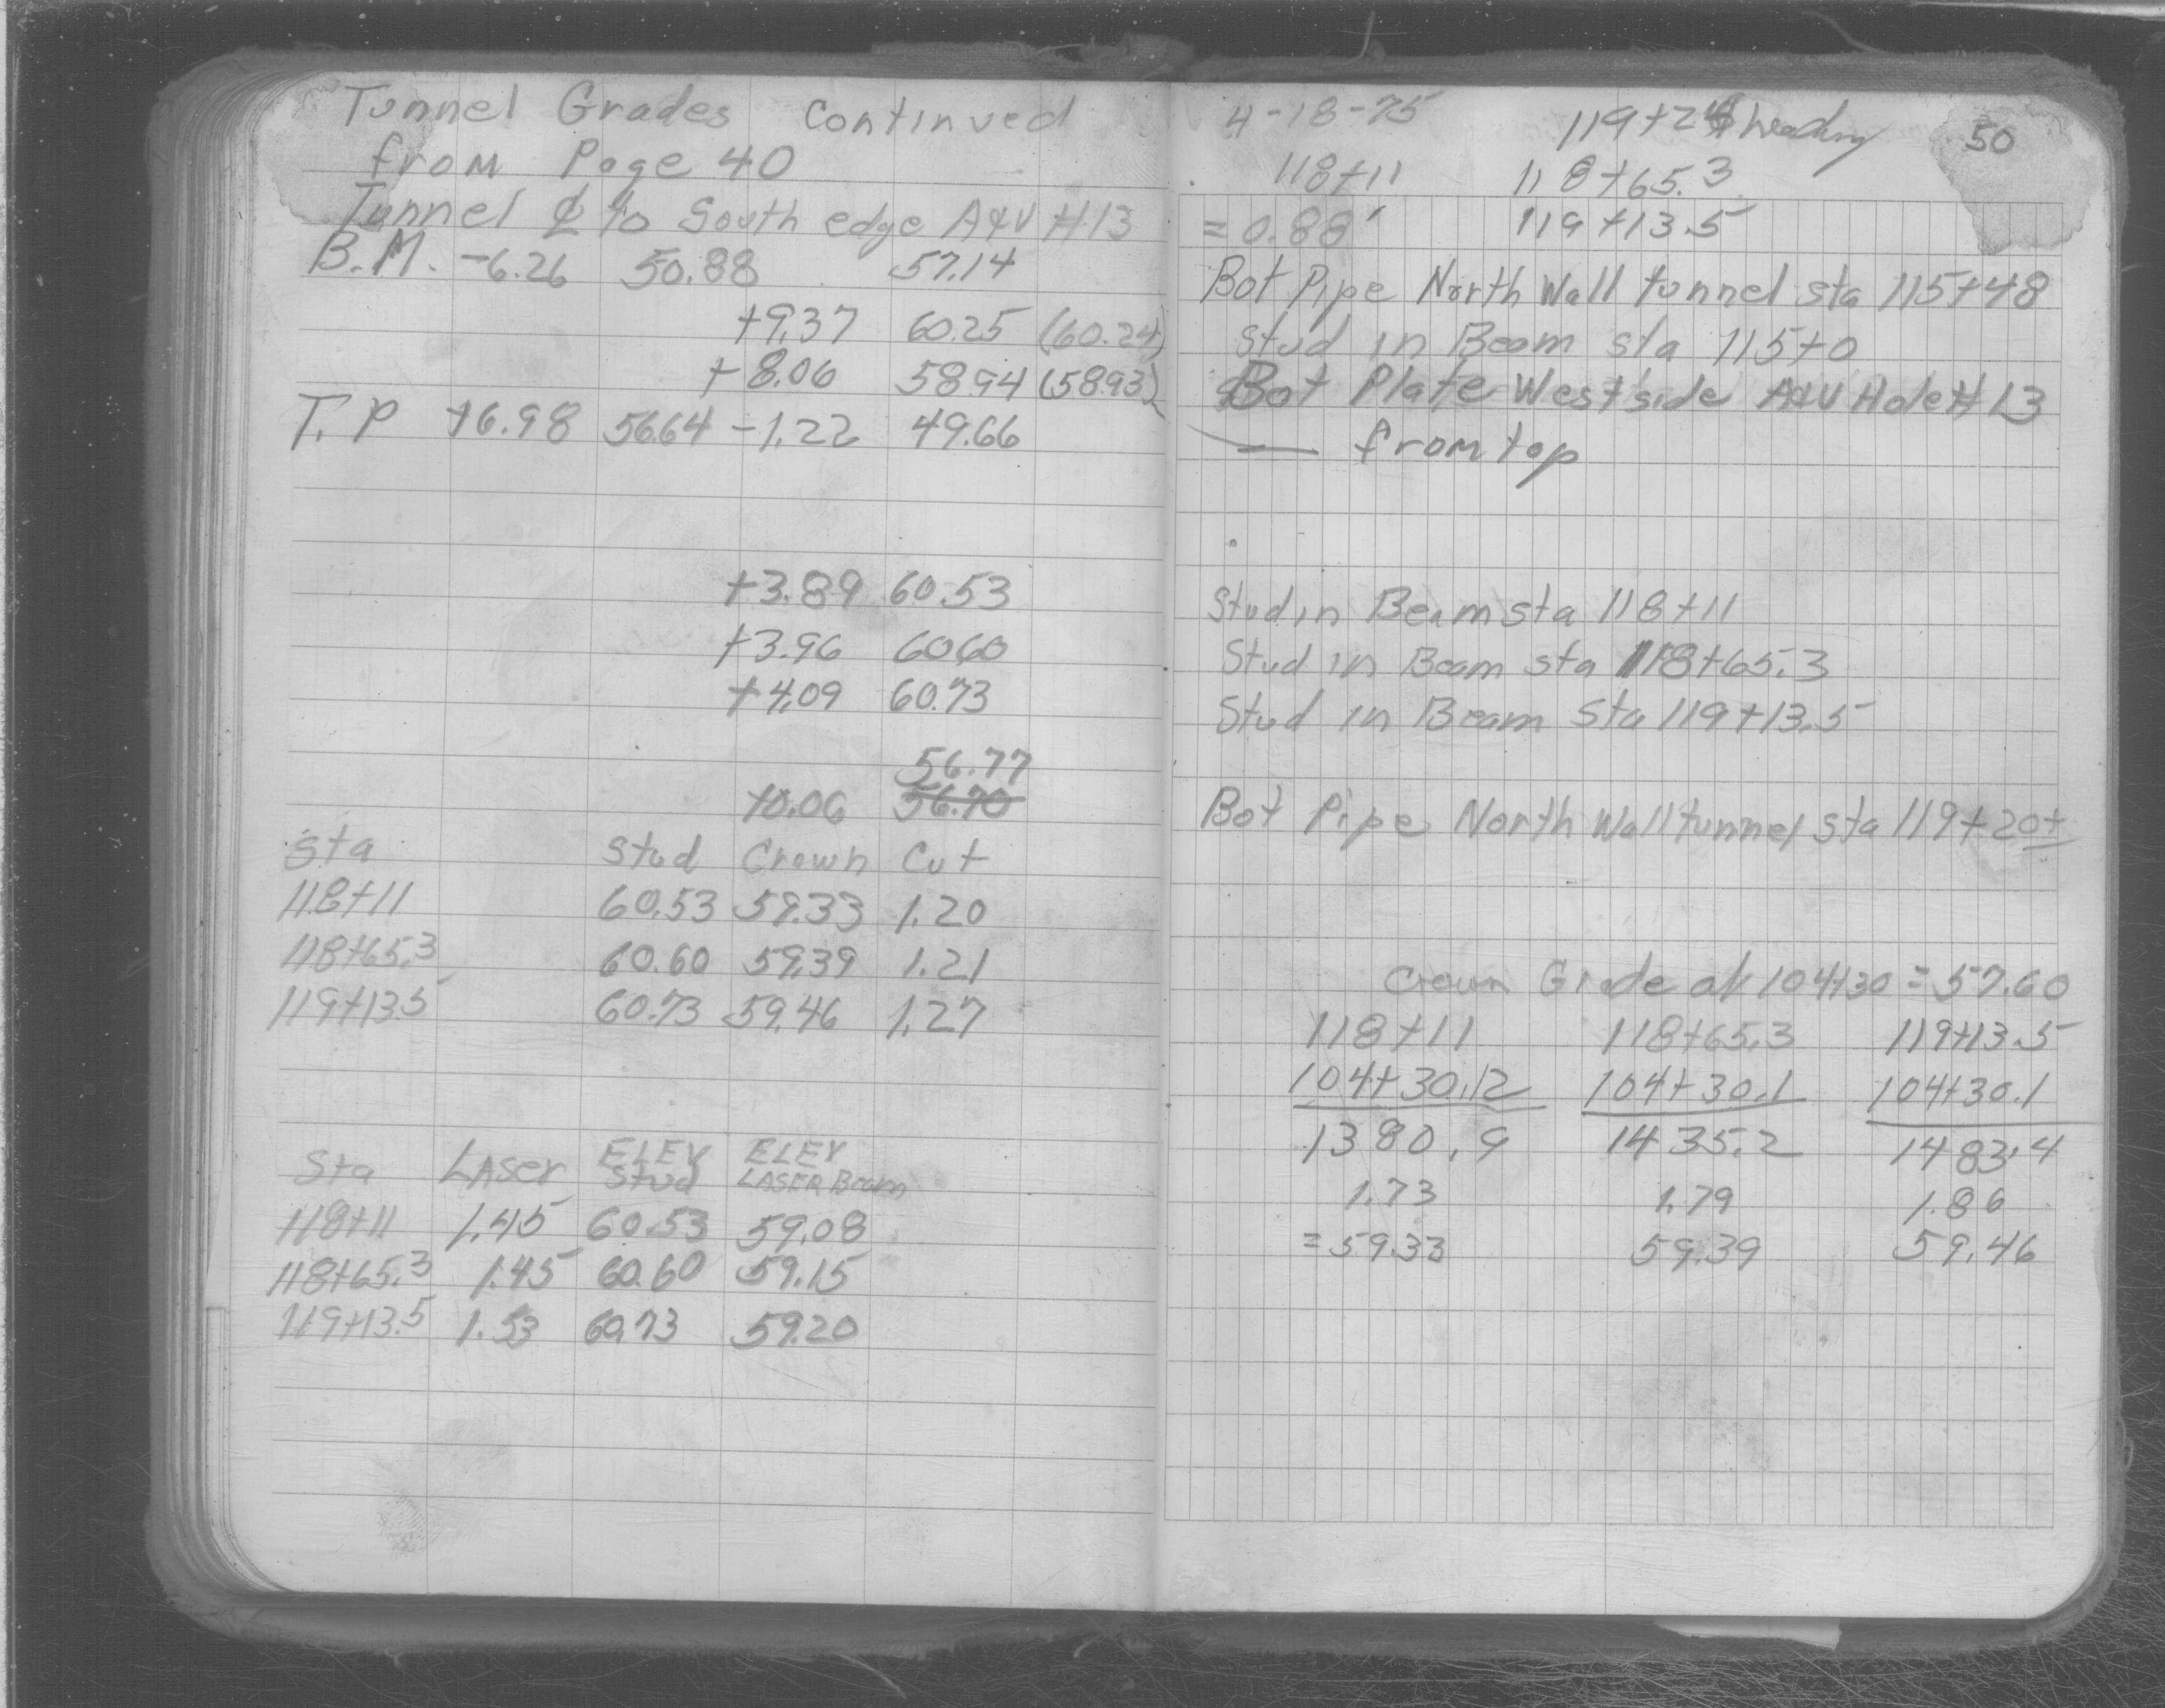 Tunnel Grades Continued
from Page 40
Tunnel ℄ to South edge A&V #13
B.M. -6.26 50.88 57.14
+9.37 60.25 (60.24)
+8.06 58.94 (58.93)
T.P +6.98 56.64 -1.22 49.66
+3.89 60.53
+3.96 60.60
+4.09 60.73
56.77
+0.06 56.70
Sta Stud Crown Cut
118+11 60.53 59.33 1.20
118+65.3 60.60 59.39 1.21
119+13.5 60.73 59.46 1.27
Sta LAser ELEV Stud ELEV LASER Beam
118+11 1.45 60.53 59.08
118+65.3 1.45 60.60 59.15
119+13.5 1.53 60.73 59.20
4-18-75 heading 50
118+11 118+65.3
= 0.88' 119+13.5
Bot Pipe North Wall tunnel sta 115+48
Stud in Beam sta 115+0
Bot Plate West side A&V Hole #13
— from top
Stud in Beam sta 118+11
Stud in Beam sta 118+65.3
Stud in Beam Sta 119+13.5
Bot Pipe North Wall tunnel sta 119+20±
Crown Grade at 104+30 = 57.60
118+11 118+65.3 119+13.5
104+30.12 104+30.1 104+30.1
1380.9 1435.2 1483.4
1.73 1.79 1.86
= 59.33 59.39 59.46